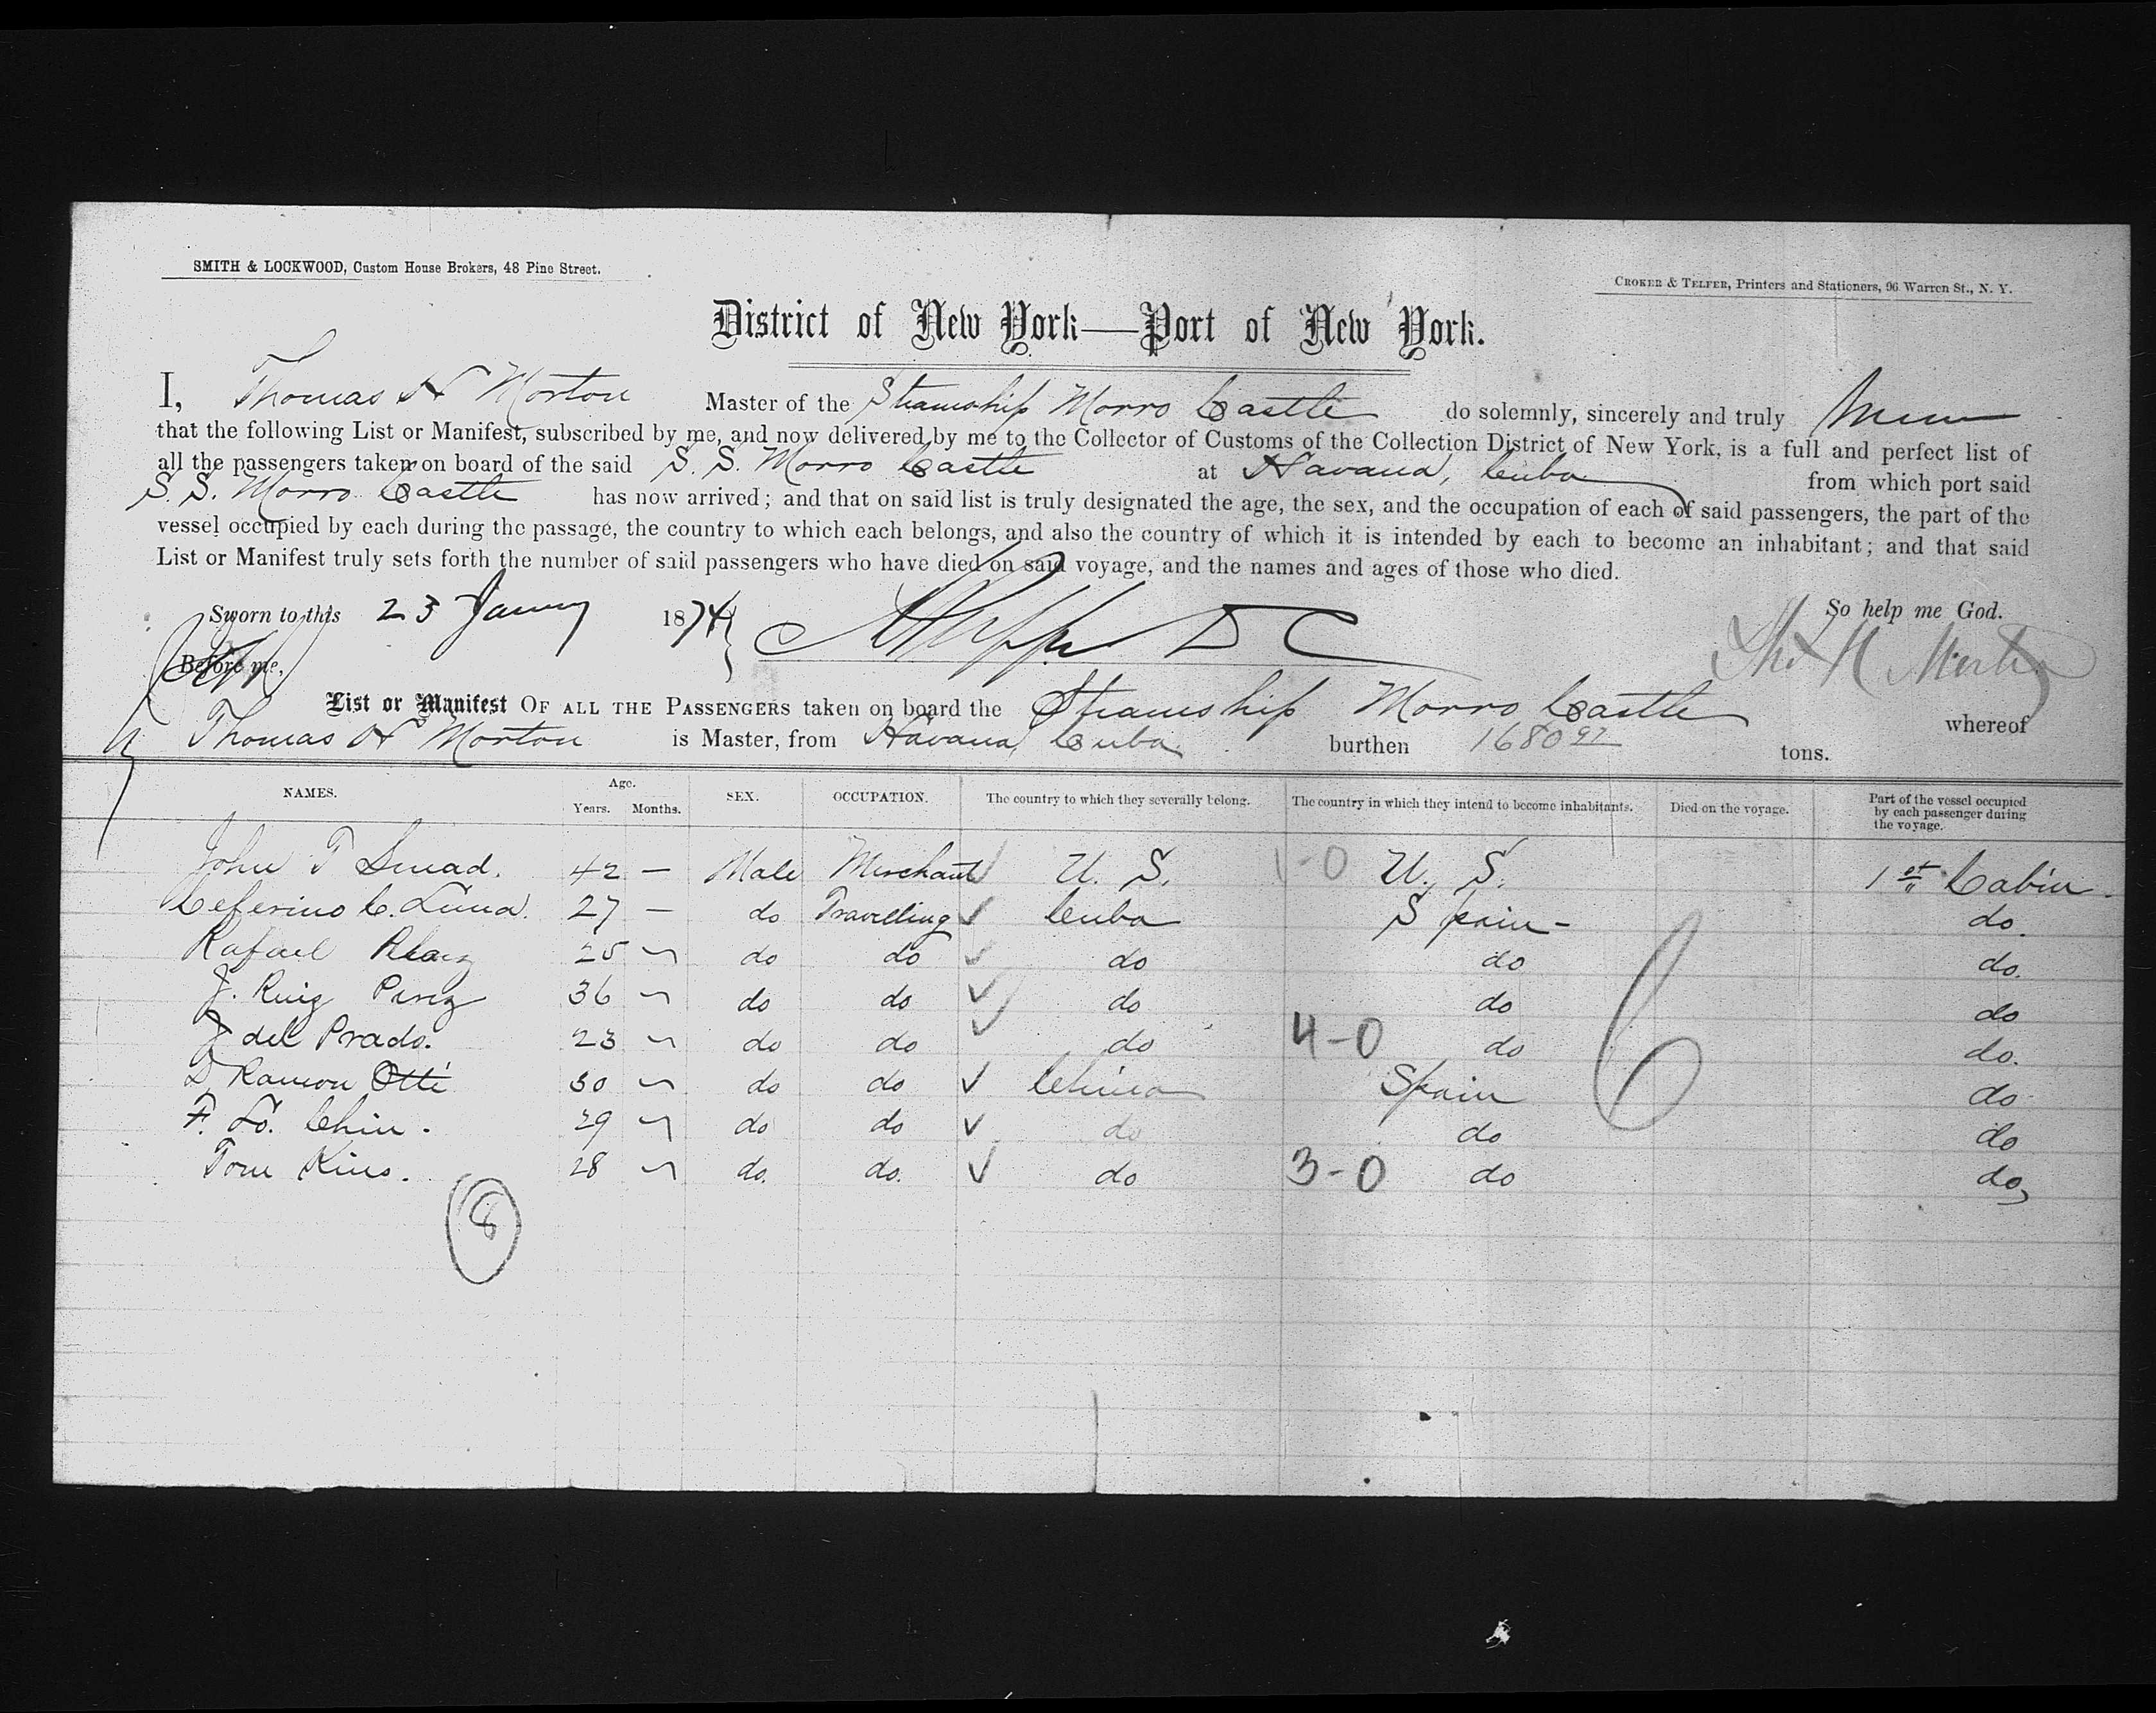 SMITH & LOCKWOOD, Custom House Brokers, 48 Pine Street.
CROKER & TELFER, Printers and Stationers, 96 Warren St., N. Y.
District of New York—Port of New York.
I, Thomas H Morton Master of the Steamship Morro Castle do solemnly, sincerely and truly
that the following List or Manifest, subscribed by me, and now delivered by me to the Collector of Customs of the Collection District of New York, is a full and perfect list of
all the passengers taken on board of the said S. S. Morro Castle at Havana, Cuba from which port said
S. S. Morro Castle has now arrived; and that on said list is truly designated the age, the sex, and the occupation of each of said passengers, the part of the
vessel occupied by each during the passage, the country to which each belongs, and also the country of which it is intended by each to become an inhabitant; and that said
List or Manifest truly sets forth the number of said passengers who have died on said voyage, and the names and ages of those who died.
Sworn to this 23 Jany 1874 So help me God.
Before me, Tho H Morton
List or Manifest OF ALL THE PASSENGERS taken on board the Steamship Morro Castle whereof
Thomas H Morton is Master, from Havana, Cuba burthen 1680 97 tons.
NAMES. Age. Years. Months. SEX. OCCUPATION. The country to which they severally belong. The country in which they intend to become inhabitants. Died on the voyage. Part of the vessel occupied by each passenger during the voyage.
John T 42 — Male Merchant U. S. 1-0 U. S. 1st Cabin
Ceferino C. Luna. 27 — do Travelling Cuba Spain - do.
Rafael 25 do do do do do.
J. Ruiz Perez 36 do do do do do
J del Prado. 23 do do do 4-0 do do.
D Ramon Otti 30 do do China Spain do
F. Lo. Chin. 29 do do do do do
Tom Kins. 28 do. do. do 3-0 do do,
8